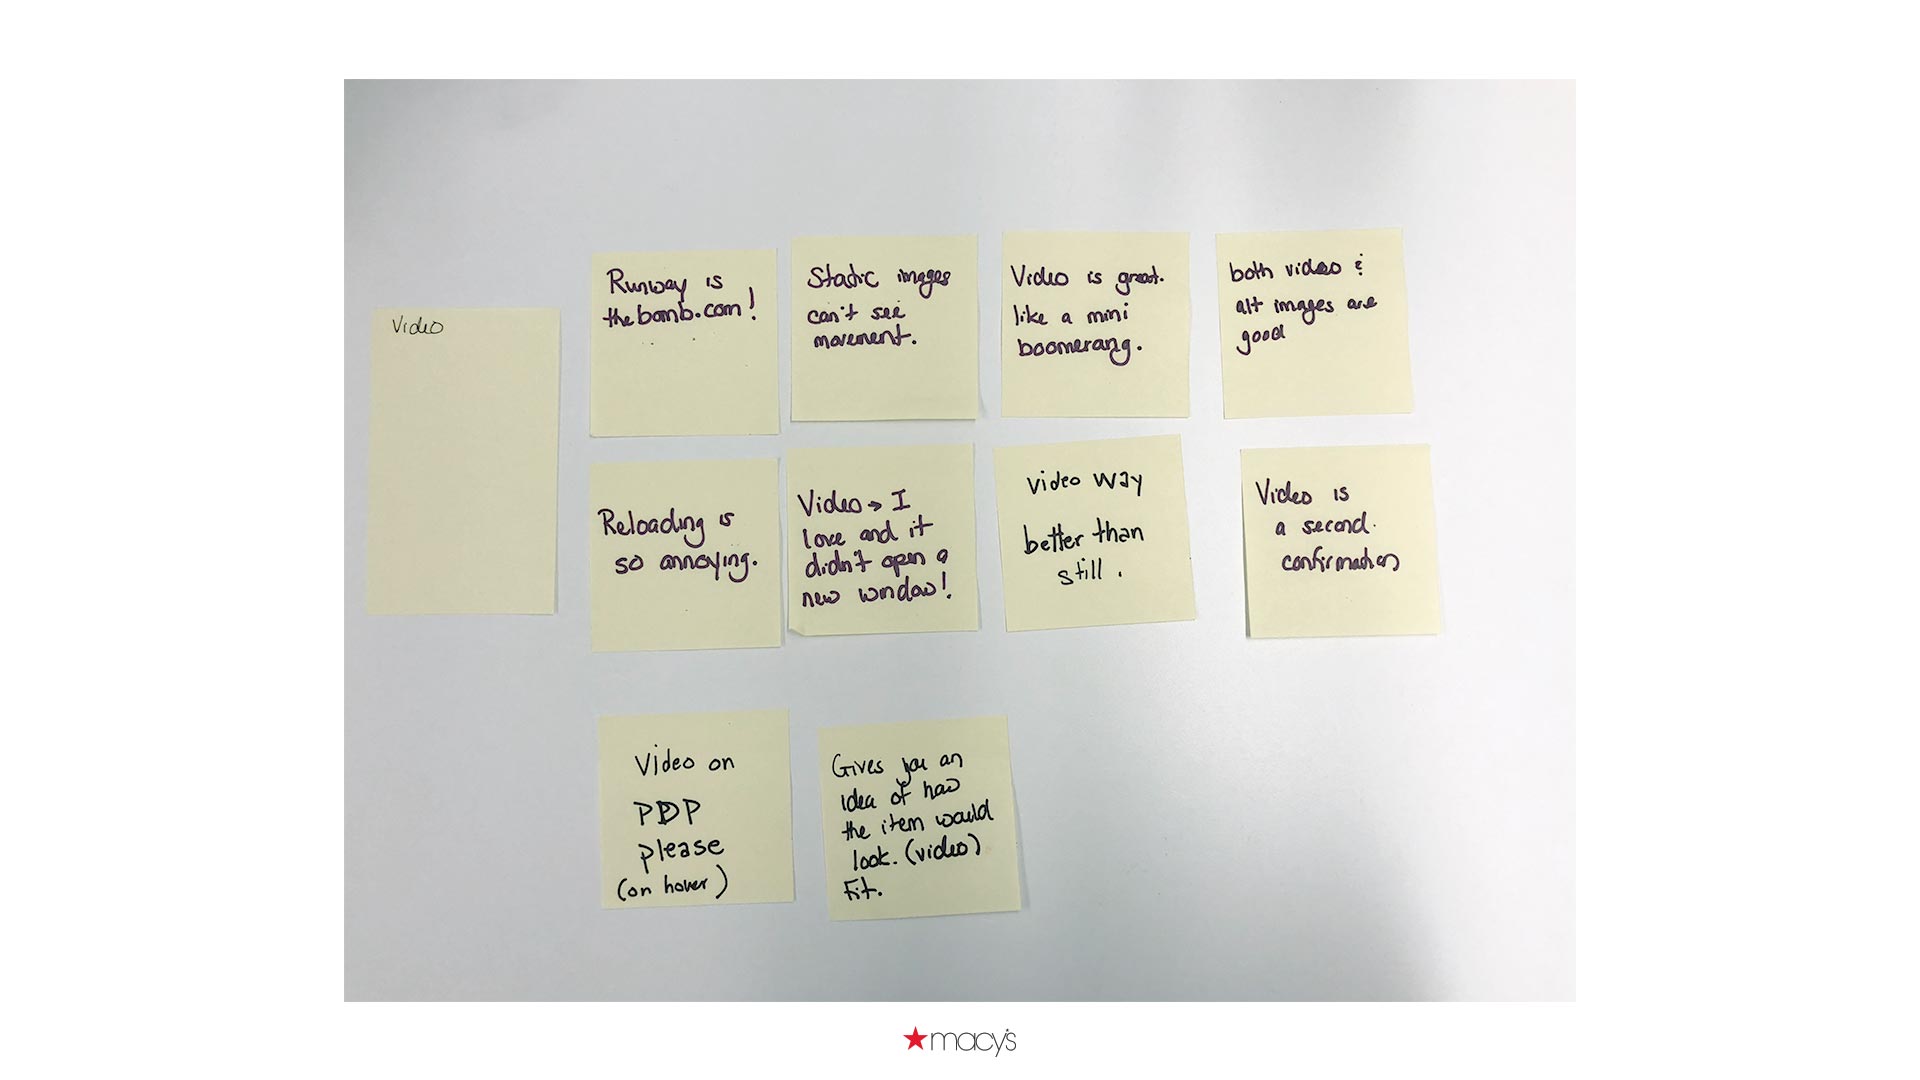 Video
Runway is
the bomb.com!
Static images
can't see
movement.
Video is great.
like a mini
boomerang.
both video &
alt images are
good
Reloading is
so annoying.
Video → I
love and it
didn't open a
new window!
video way
better than
still.
Video is
a second
confirmation
Video on
PDP
please
(on hover)
Gives you an
idea of how
the item would
look. (video)
Fit.
★macy's